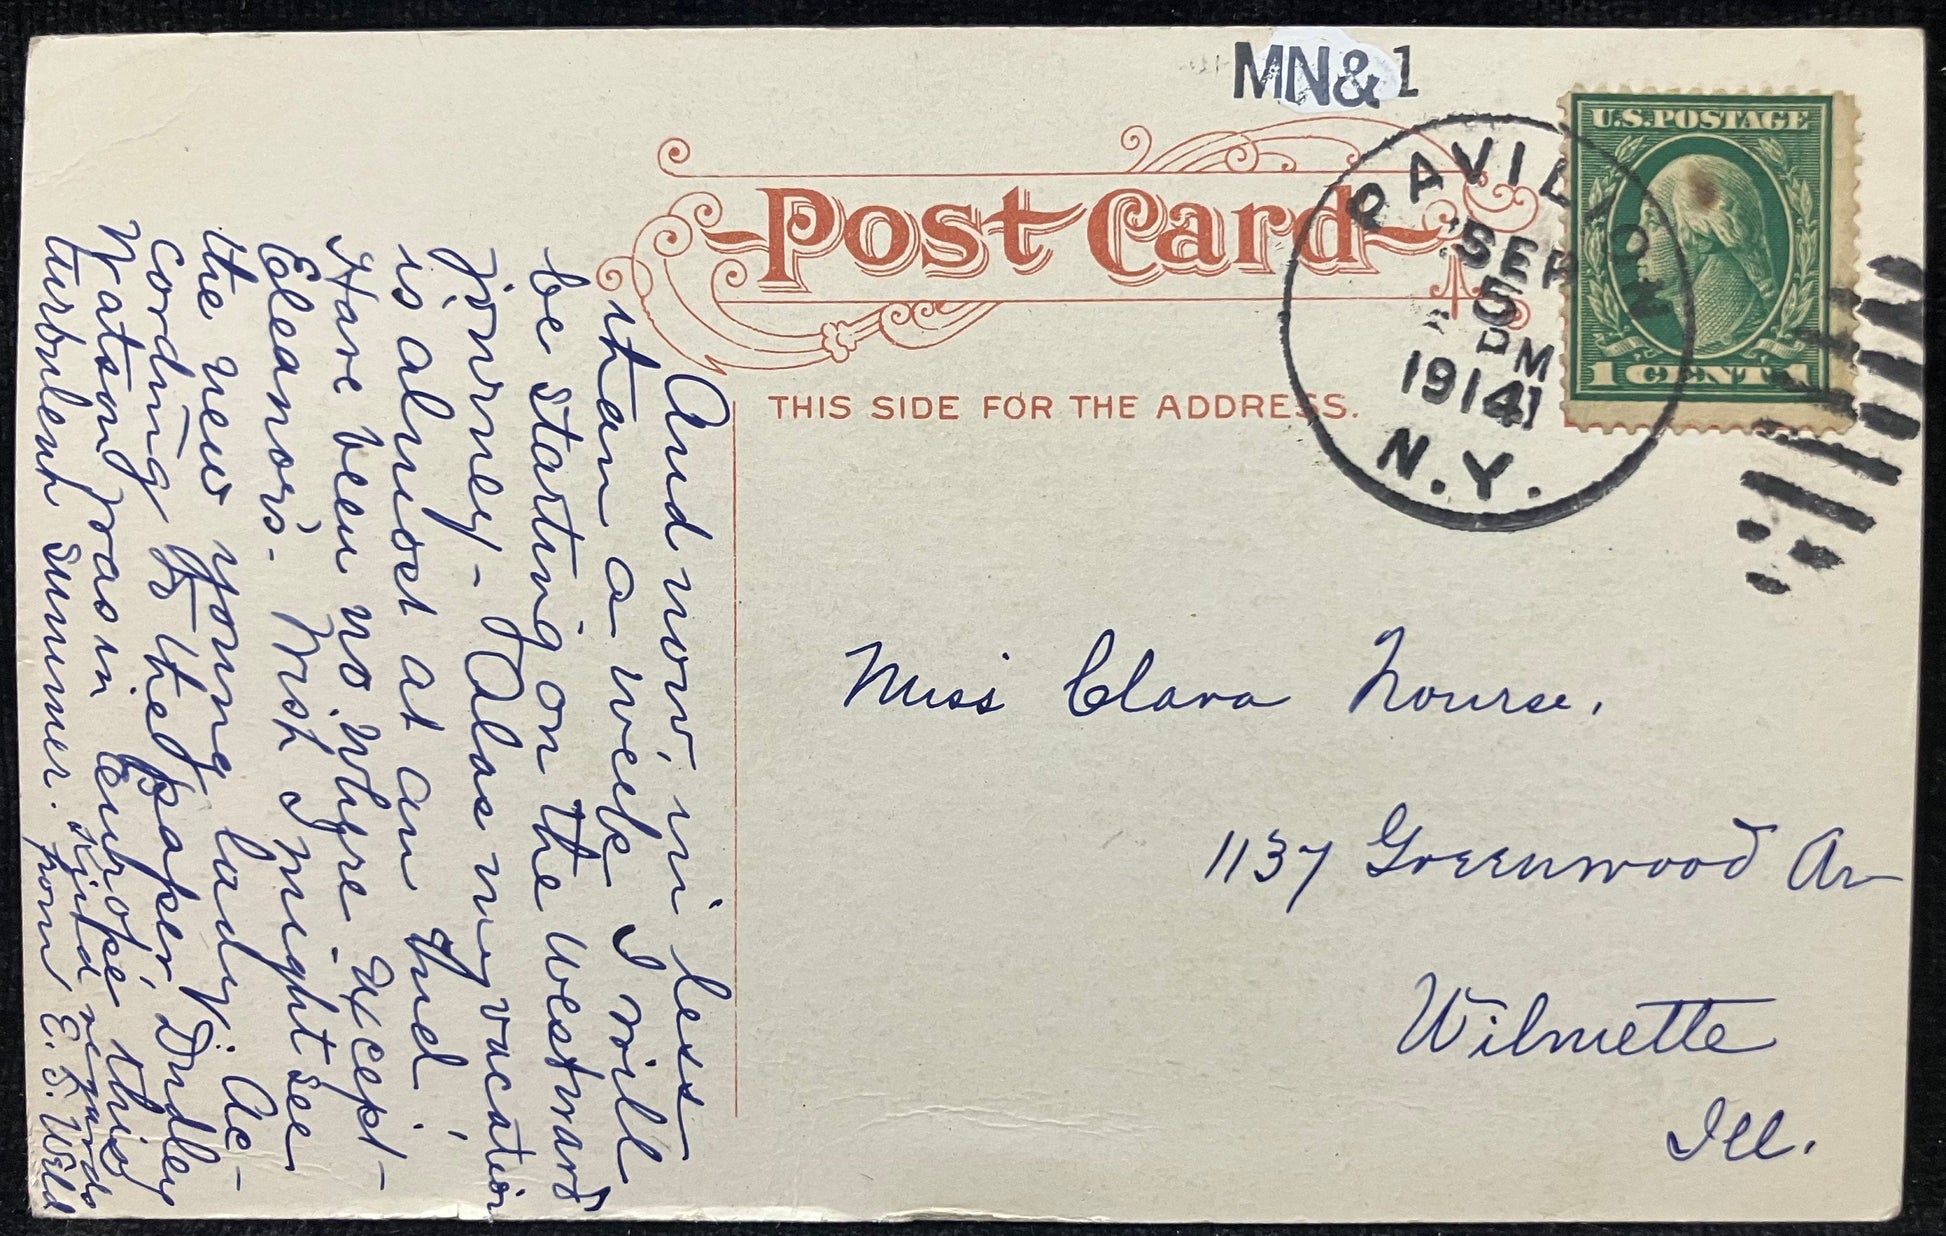 MN&1
U.S. POSTAGE
1 CENT 1
PAVILION
SEP
5
PM
1914
N.Y.
Post Card
THIS SIDE FOR THE ADDRESS.
Miss Clara Nourse,
1137 Greenwood Av
Wilmette
Ill.
And now, in less
than a week I will
be starting on the westward
jorney - Alas my vacation
is almost at an end.
Have been no where except -
Eleanor's. Wish I might see
the new young lady. Ac-
cording to the paper Dudley
Watson was in Europe this
turbulent summer. kind regards
from E. S. Weld